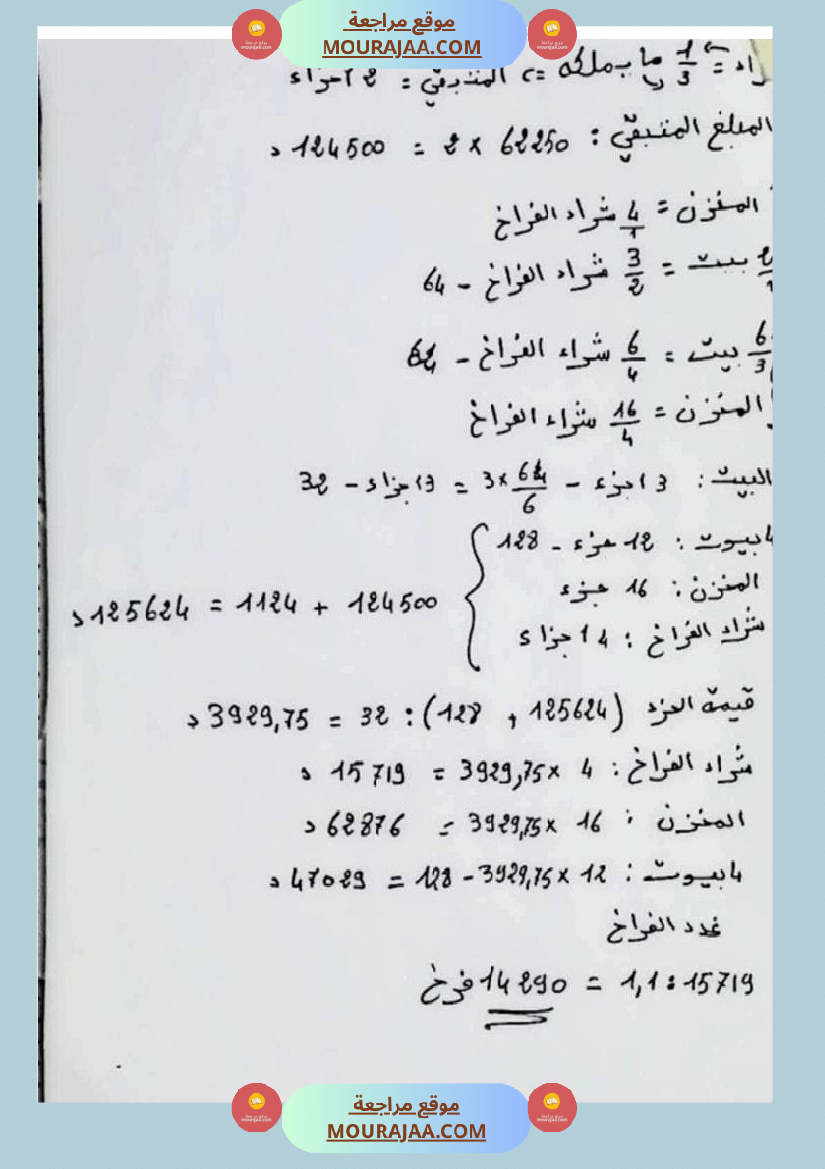 موقع مراجعة
MOURAJAA.COM
1/3 ما يملكه => المتبقي = 2 أجزاء
المبلغ المتبقي : 62250 × 2 = 124500 د
المخزن = 4/1 شراء الفراخ
بيت = 3/2 شراء الفراخ - 64
6/3 بيت = 6/4 شراء الفراخ - 64
المخزن = 16/4 شراء الفراخ
البيت : 3 اجزء - 3×64/6 = 3 اجزاء - 32
4 بيوت : 12 جزء - 128
المخزن : 16 جزء
شراء الفراخ : 4 اجزاء
124500 + 1124 = 125624 د
قيمة الجزء (125624 , 128) : 32 = 3929,75 د
شراء الفراخ : 4 ×3929,75 = 15719 د
المخزن : 16 ×3929,75 = 62876 د
4 بيوت : 12 ×3929,75 - 128 = 47029 د
عدد الفراخ
15719 : 1,1 = 14290 فرخ
موقع مراجعة
MOURAJAA.COM